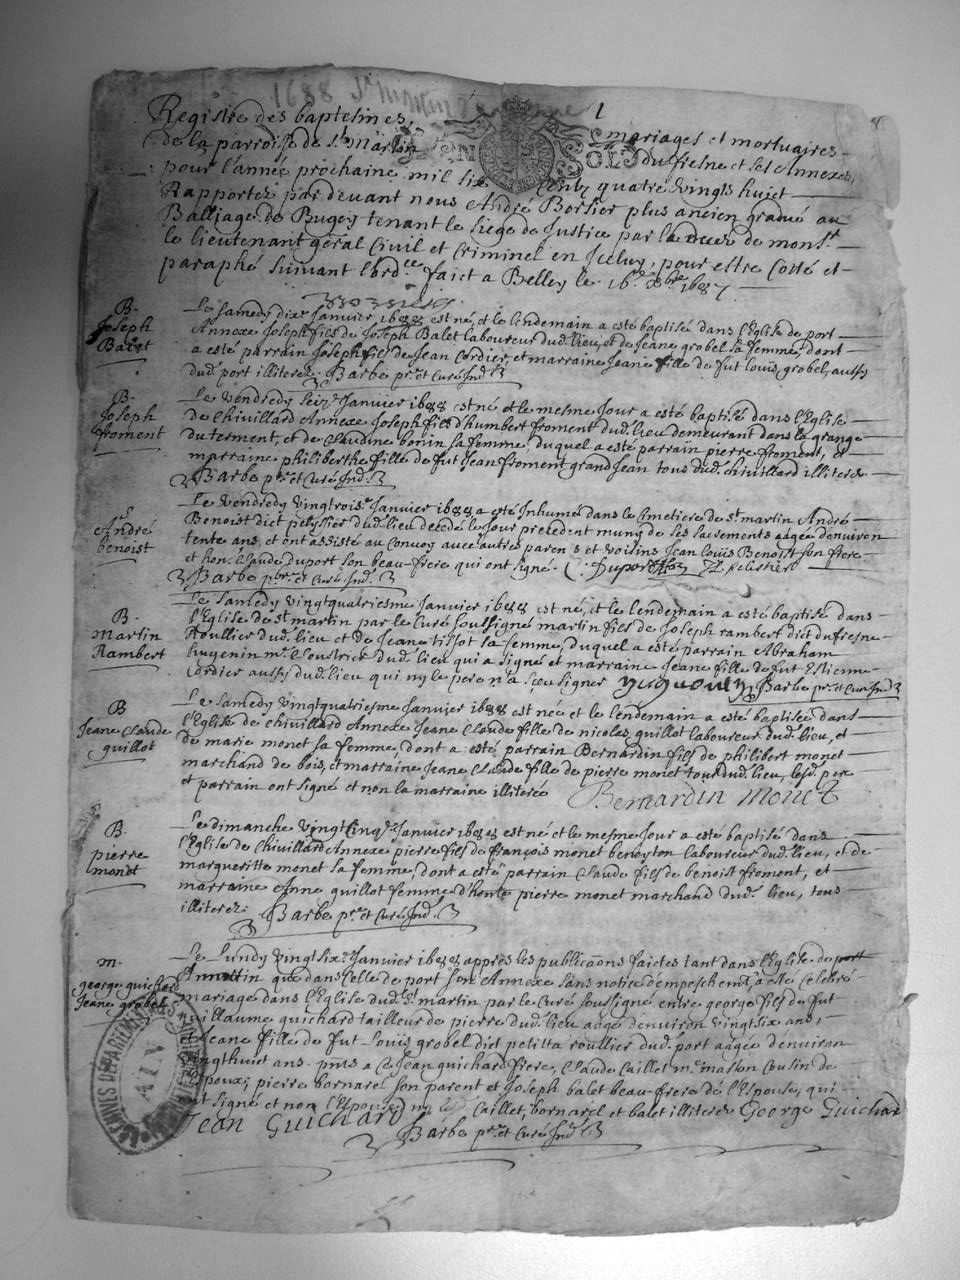 1688 St Martin
1
Registre des baptesmes, mariages et mortuaires
de la parroisse de St Martin du fresne et ses Annexes,
pour l'année prochaine mil six Cents quatre vingts huict
Rapportez par devant nous André Borsier plus ancien gradué au
Balliage de Bugey tenant le siege de Justice par la de monsr
le lieutenant gēral Civil et Criminel en Iceluy, pour estre Cotté et
paraphé suivant l'ordce faict a Belley le 16e xbre 1687
B.
Joseph
Balet
Le samedy dixe Janvier 1688 est né, et le lendemain a esté baptisé dans l'Eglise de port
Annexe Joseph fils de Joseph Balet laboureur dud. lieu, et de Jeane grobel sa femme, dont
a esté parrain Joseph fils de Jean Cordier, et marraine Jeane fille de fut louis grobel, aussy
dud. port illiterez. Barbe ptre et Curé Ind.
B.
Joseph
froment
Le vendredy seize Janvier 1688 est né et le mesme Jour a esté baptisé dans l'Eglise
de Chivillard Annexe Joseph fils d'humbert froment dud. lieu demeurant dans la grange
du terment, et de Claudine bonin sa femme, duquel a esté parrain pierre froment, et
marraine philiberthe fille de fut Jean froment grand Jean tous dud. Chivillard illiterés
Barbe ptre et Curé Ind.
S
André
benoist
Le vendredy vingtroise Janvier 1688 a esté Inhumé dans le Cimetiere de St martin André
Benoist dict pelyssier dud. lieu decedé le Jour precedent muny de ses sacrements aagé denviron
tente ans, et ont assisté au Convoy avec autres parens et voisins Jean louis Benoist son frere
et hon. Claude duport son beau-frere qui ont signé. C. Duport
Barbe pbre et Curé Ind.
B.
Martin
Rambert
Le samedy vingtquatriesme Janvier 1688 est né, et le lendemain a esté baptisé dans
l'Eglise de St martin par le Curé soussigné martin fils de Joseph rambert dict dufresne
Roullier dud. lieu et de Jeane tissot sa femme, duquel a esté parrain Abraham
hugenin me Coustrier dud. lieu qui a signé et marraine Jeane fille de fut Estienne
Cordier aussy dud. lieu qui ny le pere n'a sceu signer Barbe ptre et Curé Ind.
B
Jeane Claude
guillot
Le samedy vingtquatriesme Janvier 1688 est née et le lendemain a esté baptisée dans
l'Eglise de Chivillard Annexe Jeane Claude fille de nicolas guillot laboureur dud. lieu, et
de marie monet sa femme, dont a esté parrain Bernardin fils de philibert monet
marchand de bois, et marraine Jeane Claude fille de pierre monet tous dud. lieu, lesd. pere
et parrain ont signé et non la marraine illiterée Bernardin Monet
B.
pierre
monet
Le dimanche vingtcinqe Janvier 1688 est né et le mesme Jour a esté baptisé dans
l'Eglise de Chivillard Annexe pierre fils de françois monet benoyton laboureur dud. lieu, et de
margueritte monet sa femme, dont a esté parrain Claude fils de benoist froment, et
marraine Anne quillot femme d'honte pierre monet marchand dud. lieu, tous
illiterez. Barbe ptre et Curé Ind.
m.
george guichard
Jeane grobel
Le Lundy vingtsixe Janvier 1688 apprés les publicaōons faictes tant dans l'Eglise de port
que dans Celle de port son Annexe sans notice dempeschemt, a esté Celebré
mariage dans l'Eglise dud. St martin par le Curé soussigné entre george fils de fut
guillaume guichard tailleur de pierre dud. lieu aagé denviron vingtsix ans,
et Jeane fille de fut Loüis grobel dict petitta roullier dud. port aagée denviron
vingthuict ans. pnts a ce Jean guichard frere, Claude Caillet me masson Cousin de
Espoux; pierre bornard son parent et Joseph balet beau-frere de l'Espouse, qui
ont signé et non l'Espouse, Caillet, bornard et balet illiterés George Guichard
Jean Guichard Barbe ptre et Curé Ind.
ARCHIVES DEPARTEMENTALES
AIN